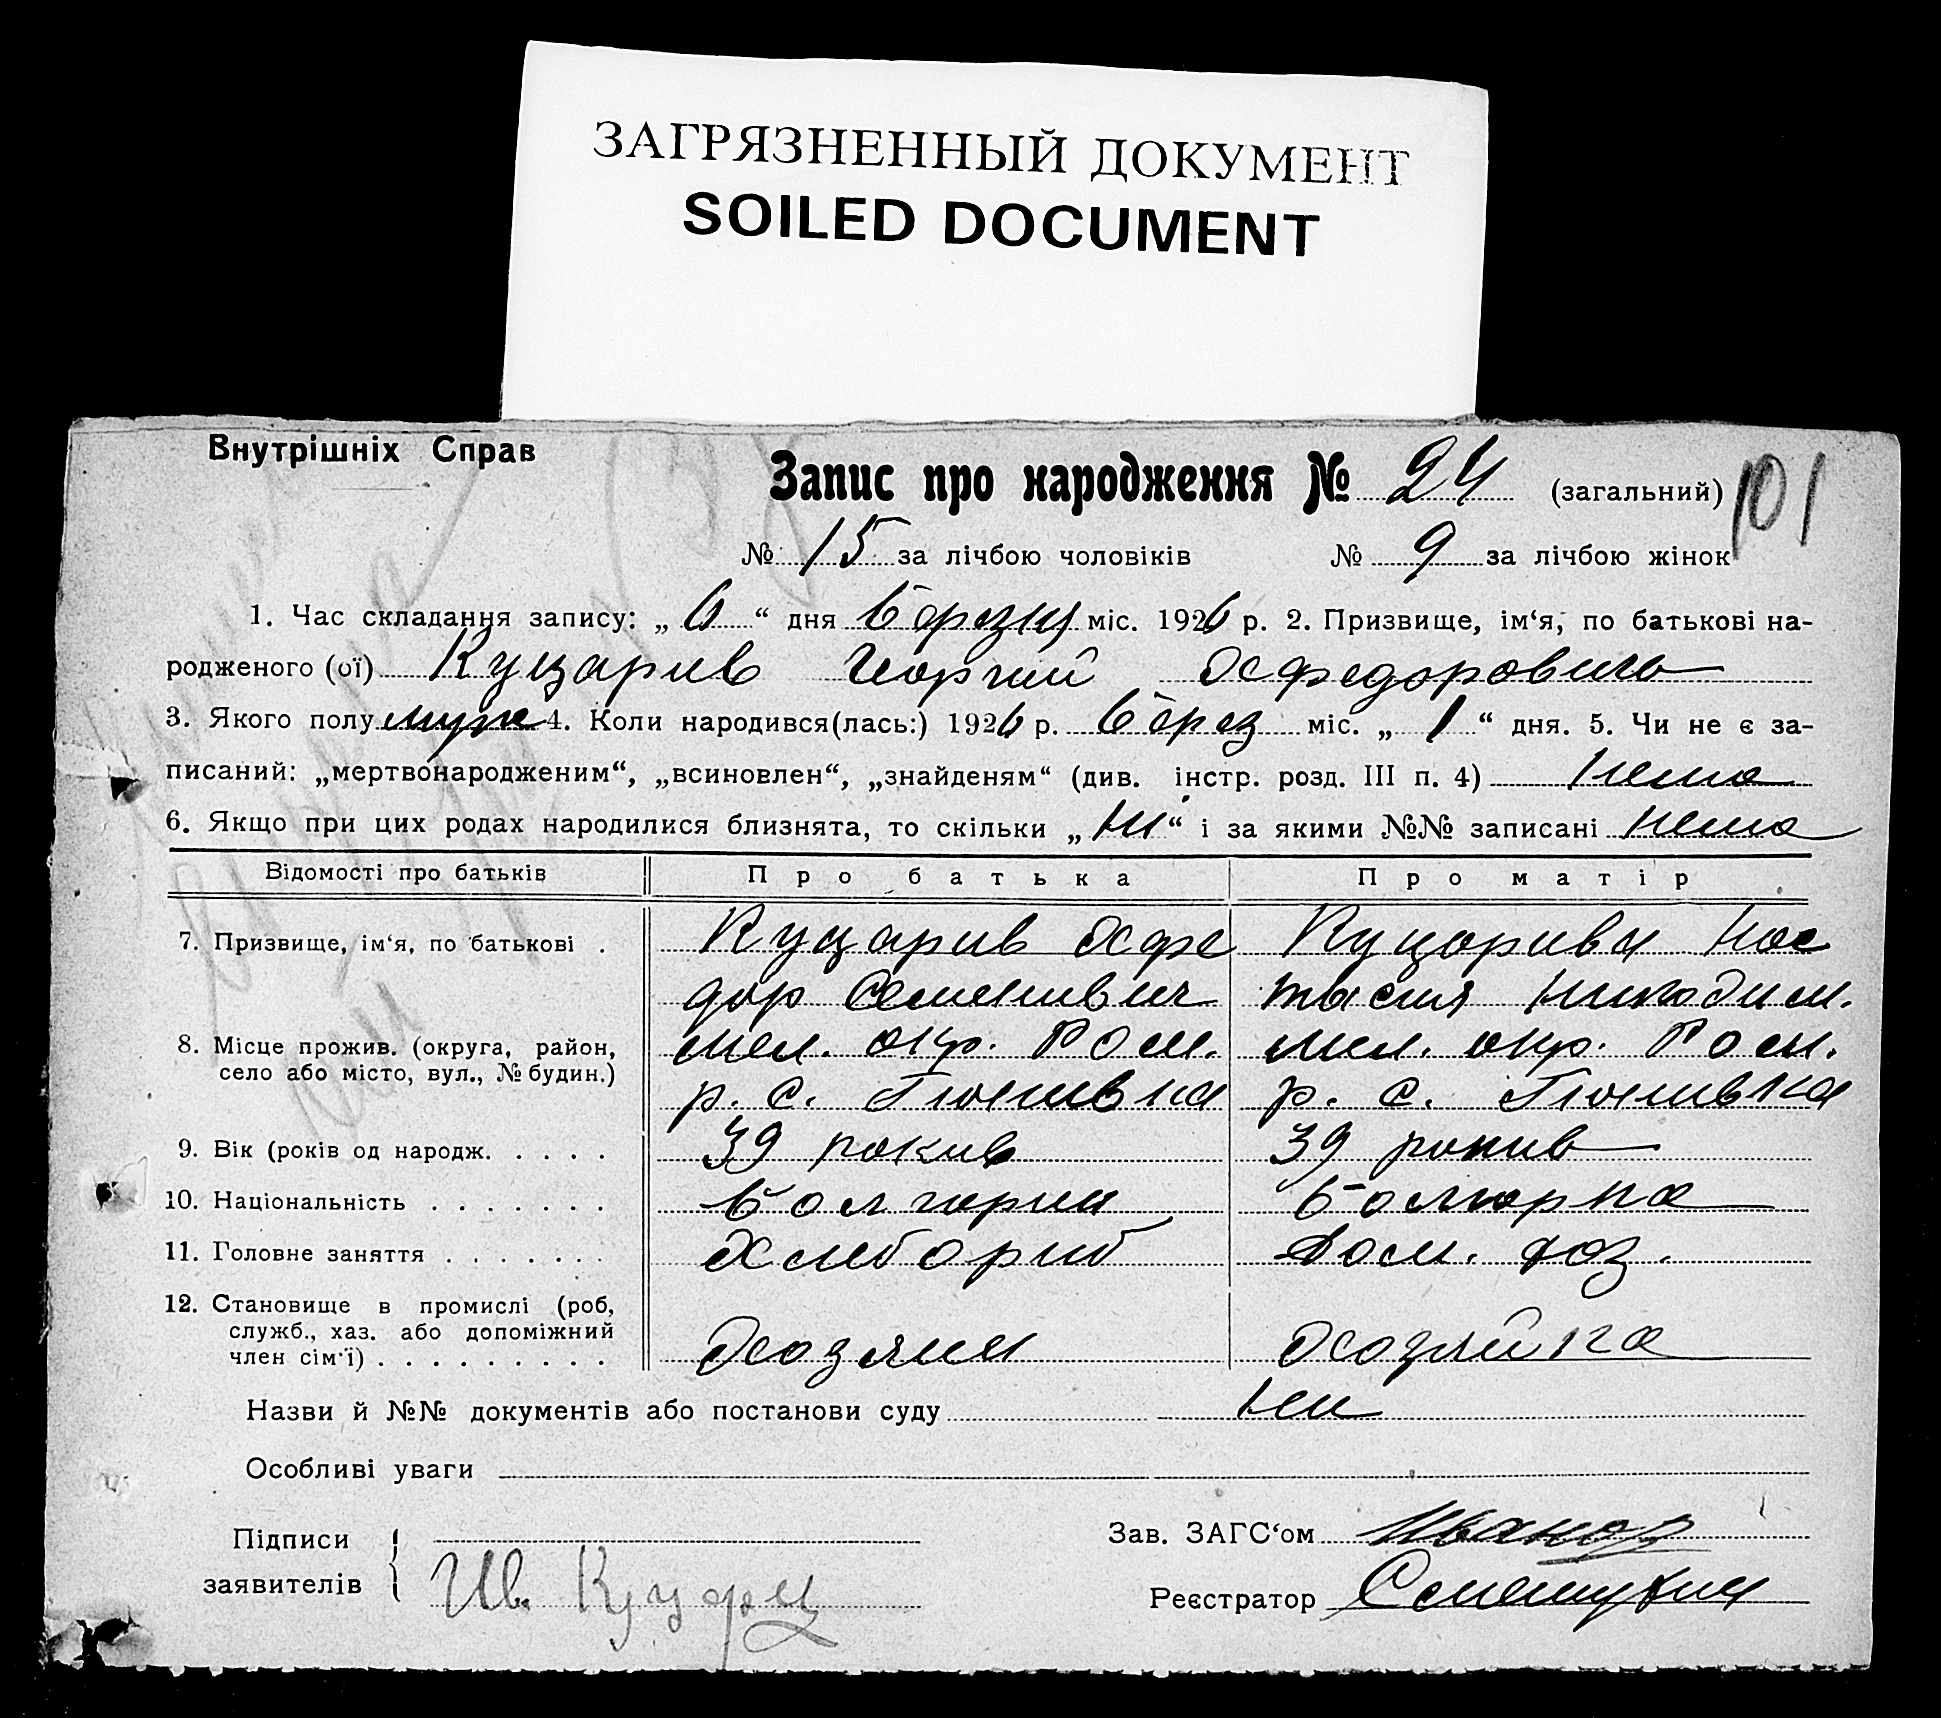 ЗАГРЯЗНЕННЫЙ ДОКУМЕНТ
SOILED DOCUMENT
Внутрішніх Справ
Запис про народження № 24 (загальний) 101
№ 15 за лічбою чоловіків № 9 за лічбою жінок
1. Час складання запису: „ 6 “ дня березня міс. 1926 р. 2. Призвище, ім‘я, по батькові на-
родженого (ої) Куцарив Георгий Хфедоровичь
3. Якого полу муж 4. Коли народився(лась:) 1926 р. берез міс. „ 1 “ дня. 5. Чи не є за-
писаний: „мертвонародженим“, „всиновлен“, „знайденям“ (див. інстр. розд. III п. 4) нема
6. Якщо при цих родах народилися близнята, то скільки „ ни “ і за якими №№ записані нема
Відомості про батьків Про батька Про матір
7. Призвище, ім‘я, по батькові . Куцарив Хфе Куцорива Нас
дор Семенивич тасия Никодим.
8. Місце прожив. (округа, район, мел. окр. Ром. мел. окр. Ром.
село або місто, вул., № будин.) р. с. Гюнивка р. с. Гюнивка
9. Вік (років од народж. . . . . 39 рокив 39 рокив
10. Національність . . . . . . . болгорин болгорка
11. Головне заняття . . . . . . . Хлибориб Дом. хоз.
12. Становище в промислі (роб,
служб., хаз. або допоміжний
член сім‘ї) . . . . . . . . . Хозяин Хозяйка
Назви й №№ документів або постанови суду ни
Особливі уваги
Підписи Зав. ЗАГС‘ом Иванов
заявителів Ив. Реєстратор